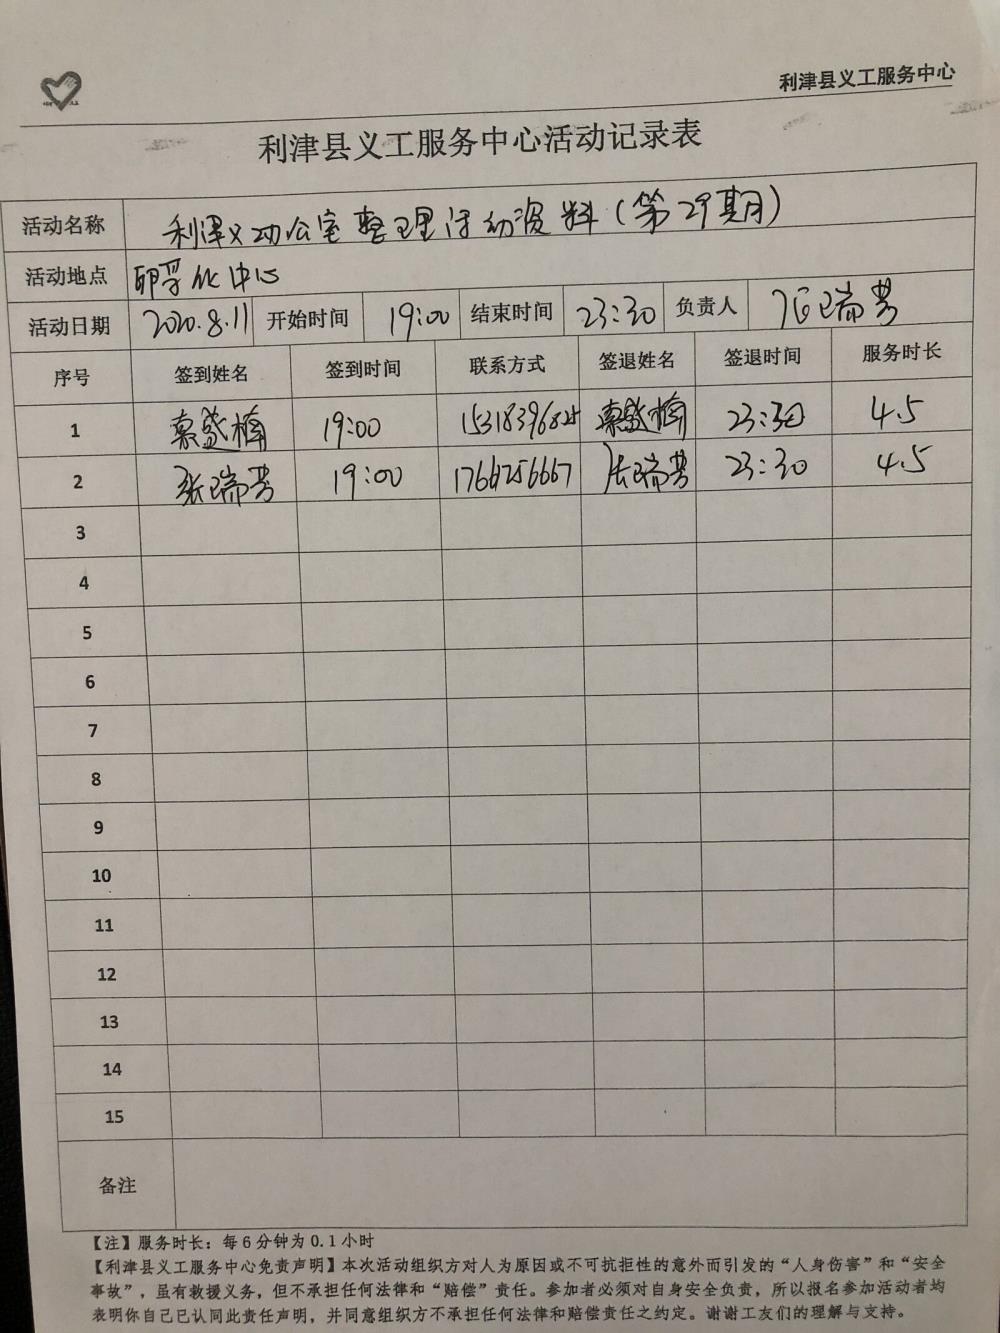 利津县义工服务中心
利津县义工服务中心活动记录表
活动名称 利津义工办公室整理活动资料(第29期)
活动地点 孵化中心
活动日期 2020.8.11 开始时间 19:00 结束时间 23:30 负责人 张瑞芳
序号 签到姓名 签到时间 联系方式 签退姓名 签退时间 服务时长
1 19:00 23:30 4.5
2 张瑞芳 19:00 张瑞芳 23:30 4.5
3
4
5
6
7
8
9
10
11
12
13
14
15
备注
【注】服务时长:每6分钟为0.1小时
【利津县义工服务中心免责声明】本次活动组织方对人为原因或不可抗拒性的意外而引发的“人身伤害”和“安全
事故”,虽有救援义务,但不承担任何法律和“赔偿”责任。参加者必须对自身安全负责,所以报名参加活动者均
表明你自己已认同此责任声明,并同意组织方不承担任何法律和赔偿责任之约定。谢谢工友们的理解与支持。